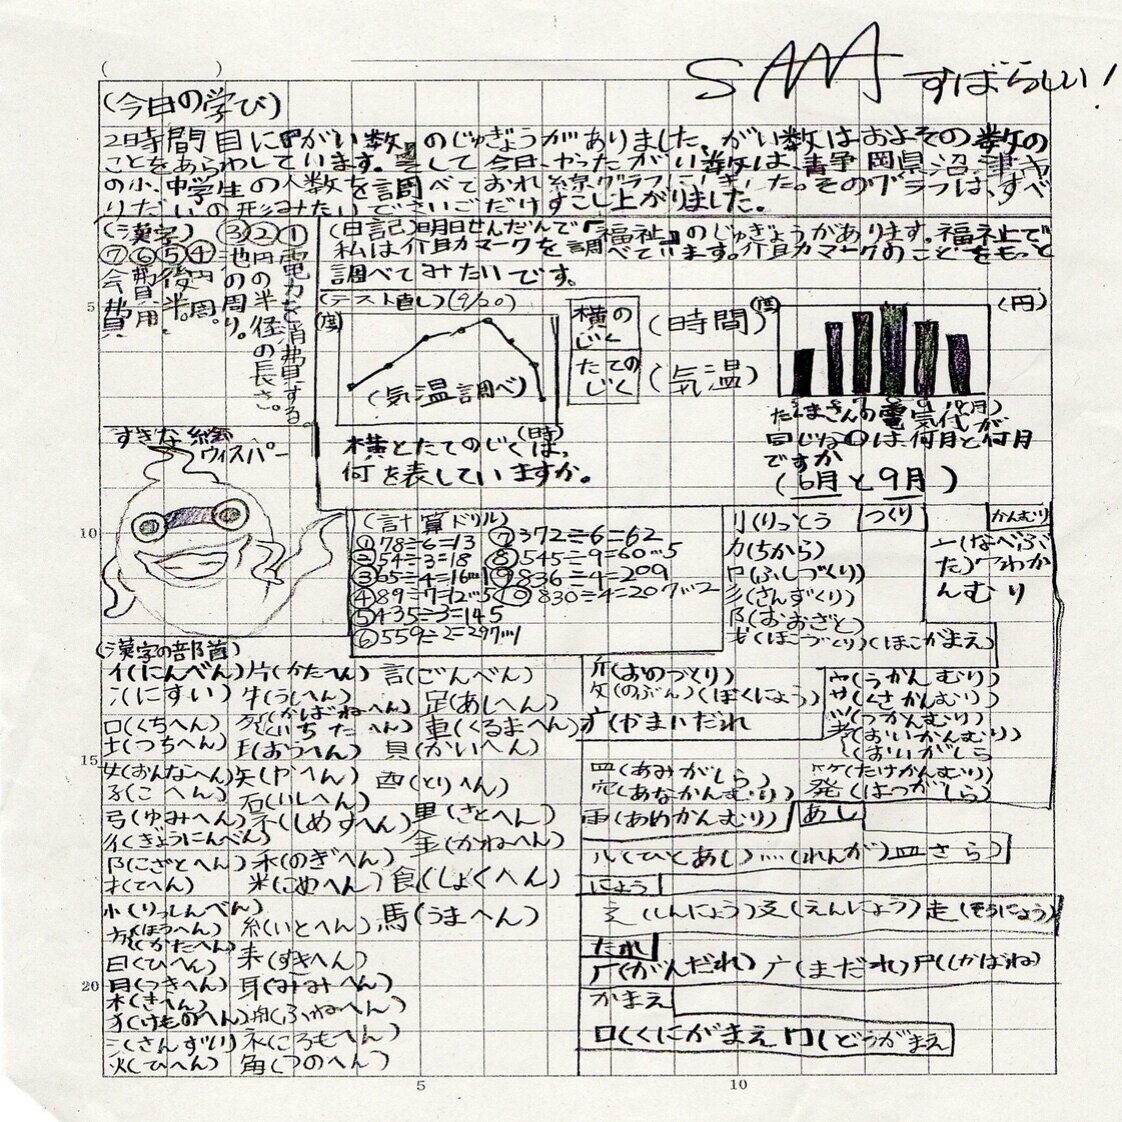 SAAA すばらしい!
(今日の学び)
2時間目に『がい数』のじゅぎょうがありました。がい数はおよその数の
ことをあらわしています。そして今日やったがい数は、静岡県沼津市
の小、中学生の人数を調べておれ線グラフにしました。そのグラフは、すべ
りだいの形みたいでさいごだけすこし上がりました。
(漢字)
①電力を消費する。
②円の半径の長さ。
③池の周り。
④円周。
⑤後半。
⑥費用
⑦会費
(日記)明日せんだんで『福祉』のじゅぎょうがあります。福祉で
私は介助マークを調べています。介助マークのことをもっと
調べてみたいです。
(テスト直し)(9/20)
(度)
(気温調べ)
(時)
横とたてのじくは、
何を表していますか。
横のじく (時間)
たてのじく (気温)
(円)
5 6 7 8 9 10(月)
たまさんの電気代が
同じなのは、何月と何月
ですか
(6月と9月)
すきな絵
ウィスパー
(計算ドリル)
①78÷6=13
②54÷3=18
③65÷4=16…1
④89÷7=12…5
⑤435÷3=145
⑥559÷2=297…1
⑦372÷6=62
⑧545÷9=60…5
⑨836÷4=209
⑩830÷4=207…2
つくり
刂(りっとう
力(ちから)
卩(ふしづくり)
彡(さんずくり)
阝(おおざと)
(ほこづくり)(ほこがまえ)
斤(おのづくり)
攵(のぶん)(ぼくにょう)
疒(やまいだれ
かんむり
亠(なべぶ
た)冖(わか
んむり
宀(うかんむり)
艹(くさかんむり)
(つかんむり)
耂(おいかんむり)
(おいがしら
竹(たけかんむり)
癶(はつがしら)
罒(あみがしら)
穴(あなかんむり)
雨(あめかんむり)
あし
儿(ひとあし) 灬(れんが) 皿 さら)
にょう
辶(しんにょう) 廴(えんにょう) 走(そうにょう)
たれ
厂(がんだれ) 广(まだれ) 尸(しかばね)
かまえ
囗(くにがまえ 冂(どうがまえ
(漢字の部首)
イ(にんべん)
冫(にすい)
口(くちへん)
土(つちへん)
女(おんなへん)
子(こへん)
弓(ゆみへん)
彳(ぎょうにんべん)
阝(こざとへん)
扌(てへん)
忄(りっしんべん)
方(ほうへん)
(かたへん)
日(ひへん)
月(つきへん)
木(きへん)
犭(けものへん)
氵(さんずい)
火(ひへん)
片(かたへん)
牛(うしへん)
歹(かばねへん
いちたへん)
王(おうへん)
矢(やへん)
石(いしへん)
ネ(しめすへん)
禾(のぎへん)
米(こめへん)
糸(いとへん)
耒(すきへん)
耳(みみへん)
舟(ふねへん)
衤(ころもへん)
角(つのへん)
言(ごんべん)
足(あしへん)
車(くるまへん)
貝(かいへん)
酉(とりへん)
里(さとへん)
金(かねへん)
食(しょくへん)
馬(うまへん)
5
10
15
20
5
10